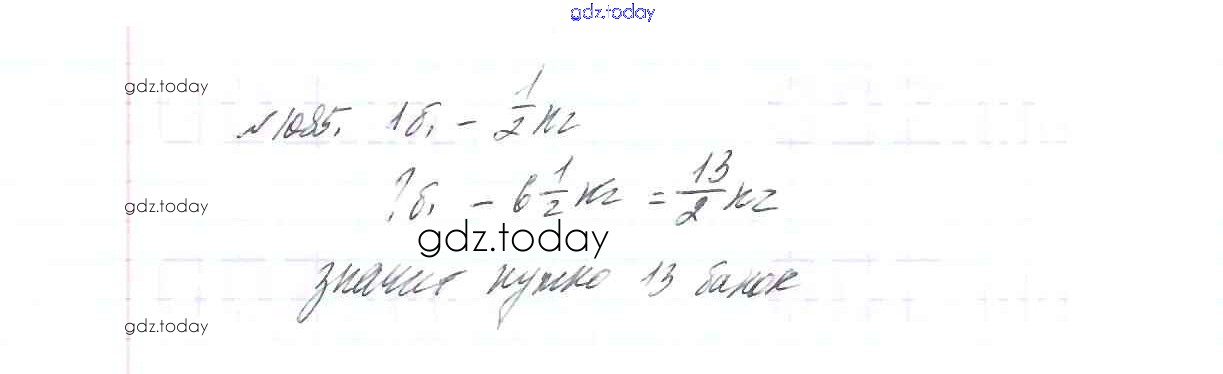 gdz.today
gdz.today
№ 1085. 1б. – 1/2 кг
?б. – 6 1/2 кг = 13/2 кг
gdz.today
gdz.today
значит нужно 13 банок
gdz.today